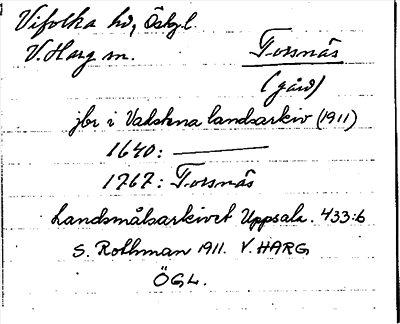 Vifolka hd, Östgl
V. Harg sn. Torsnäs
(gård)
jbr i Vadstena landsarkiv (1911)
1640: ———
1767: Torsnäs
Landsmålsarkivet Uppsala. 433:6
S. Rothman 1911. V. HARG
ÖGL.